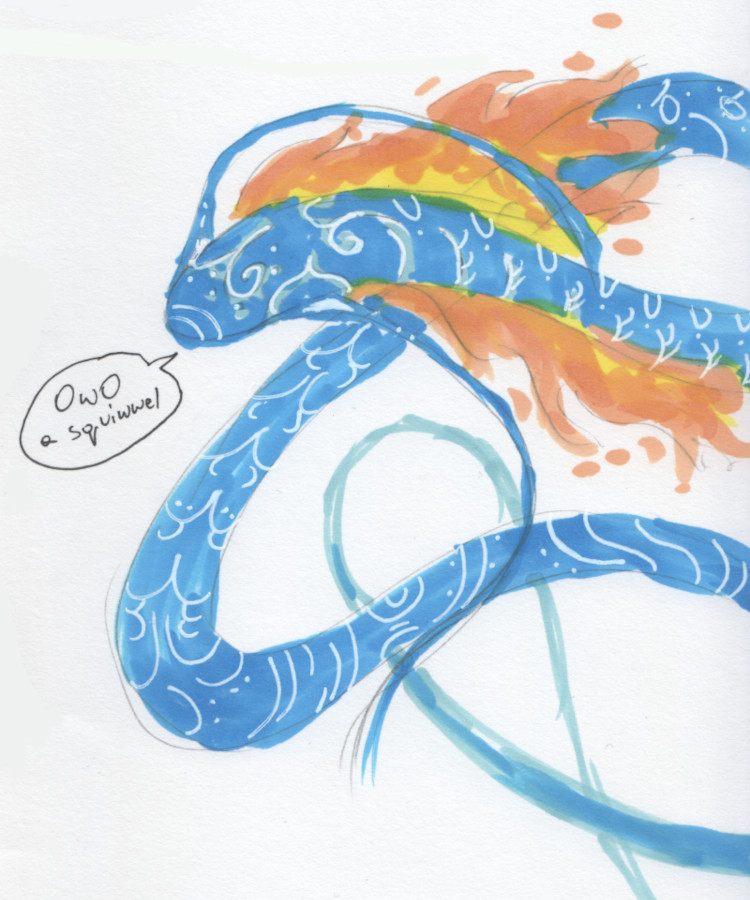 OwO
a squiwwel